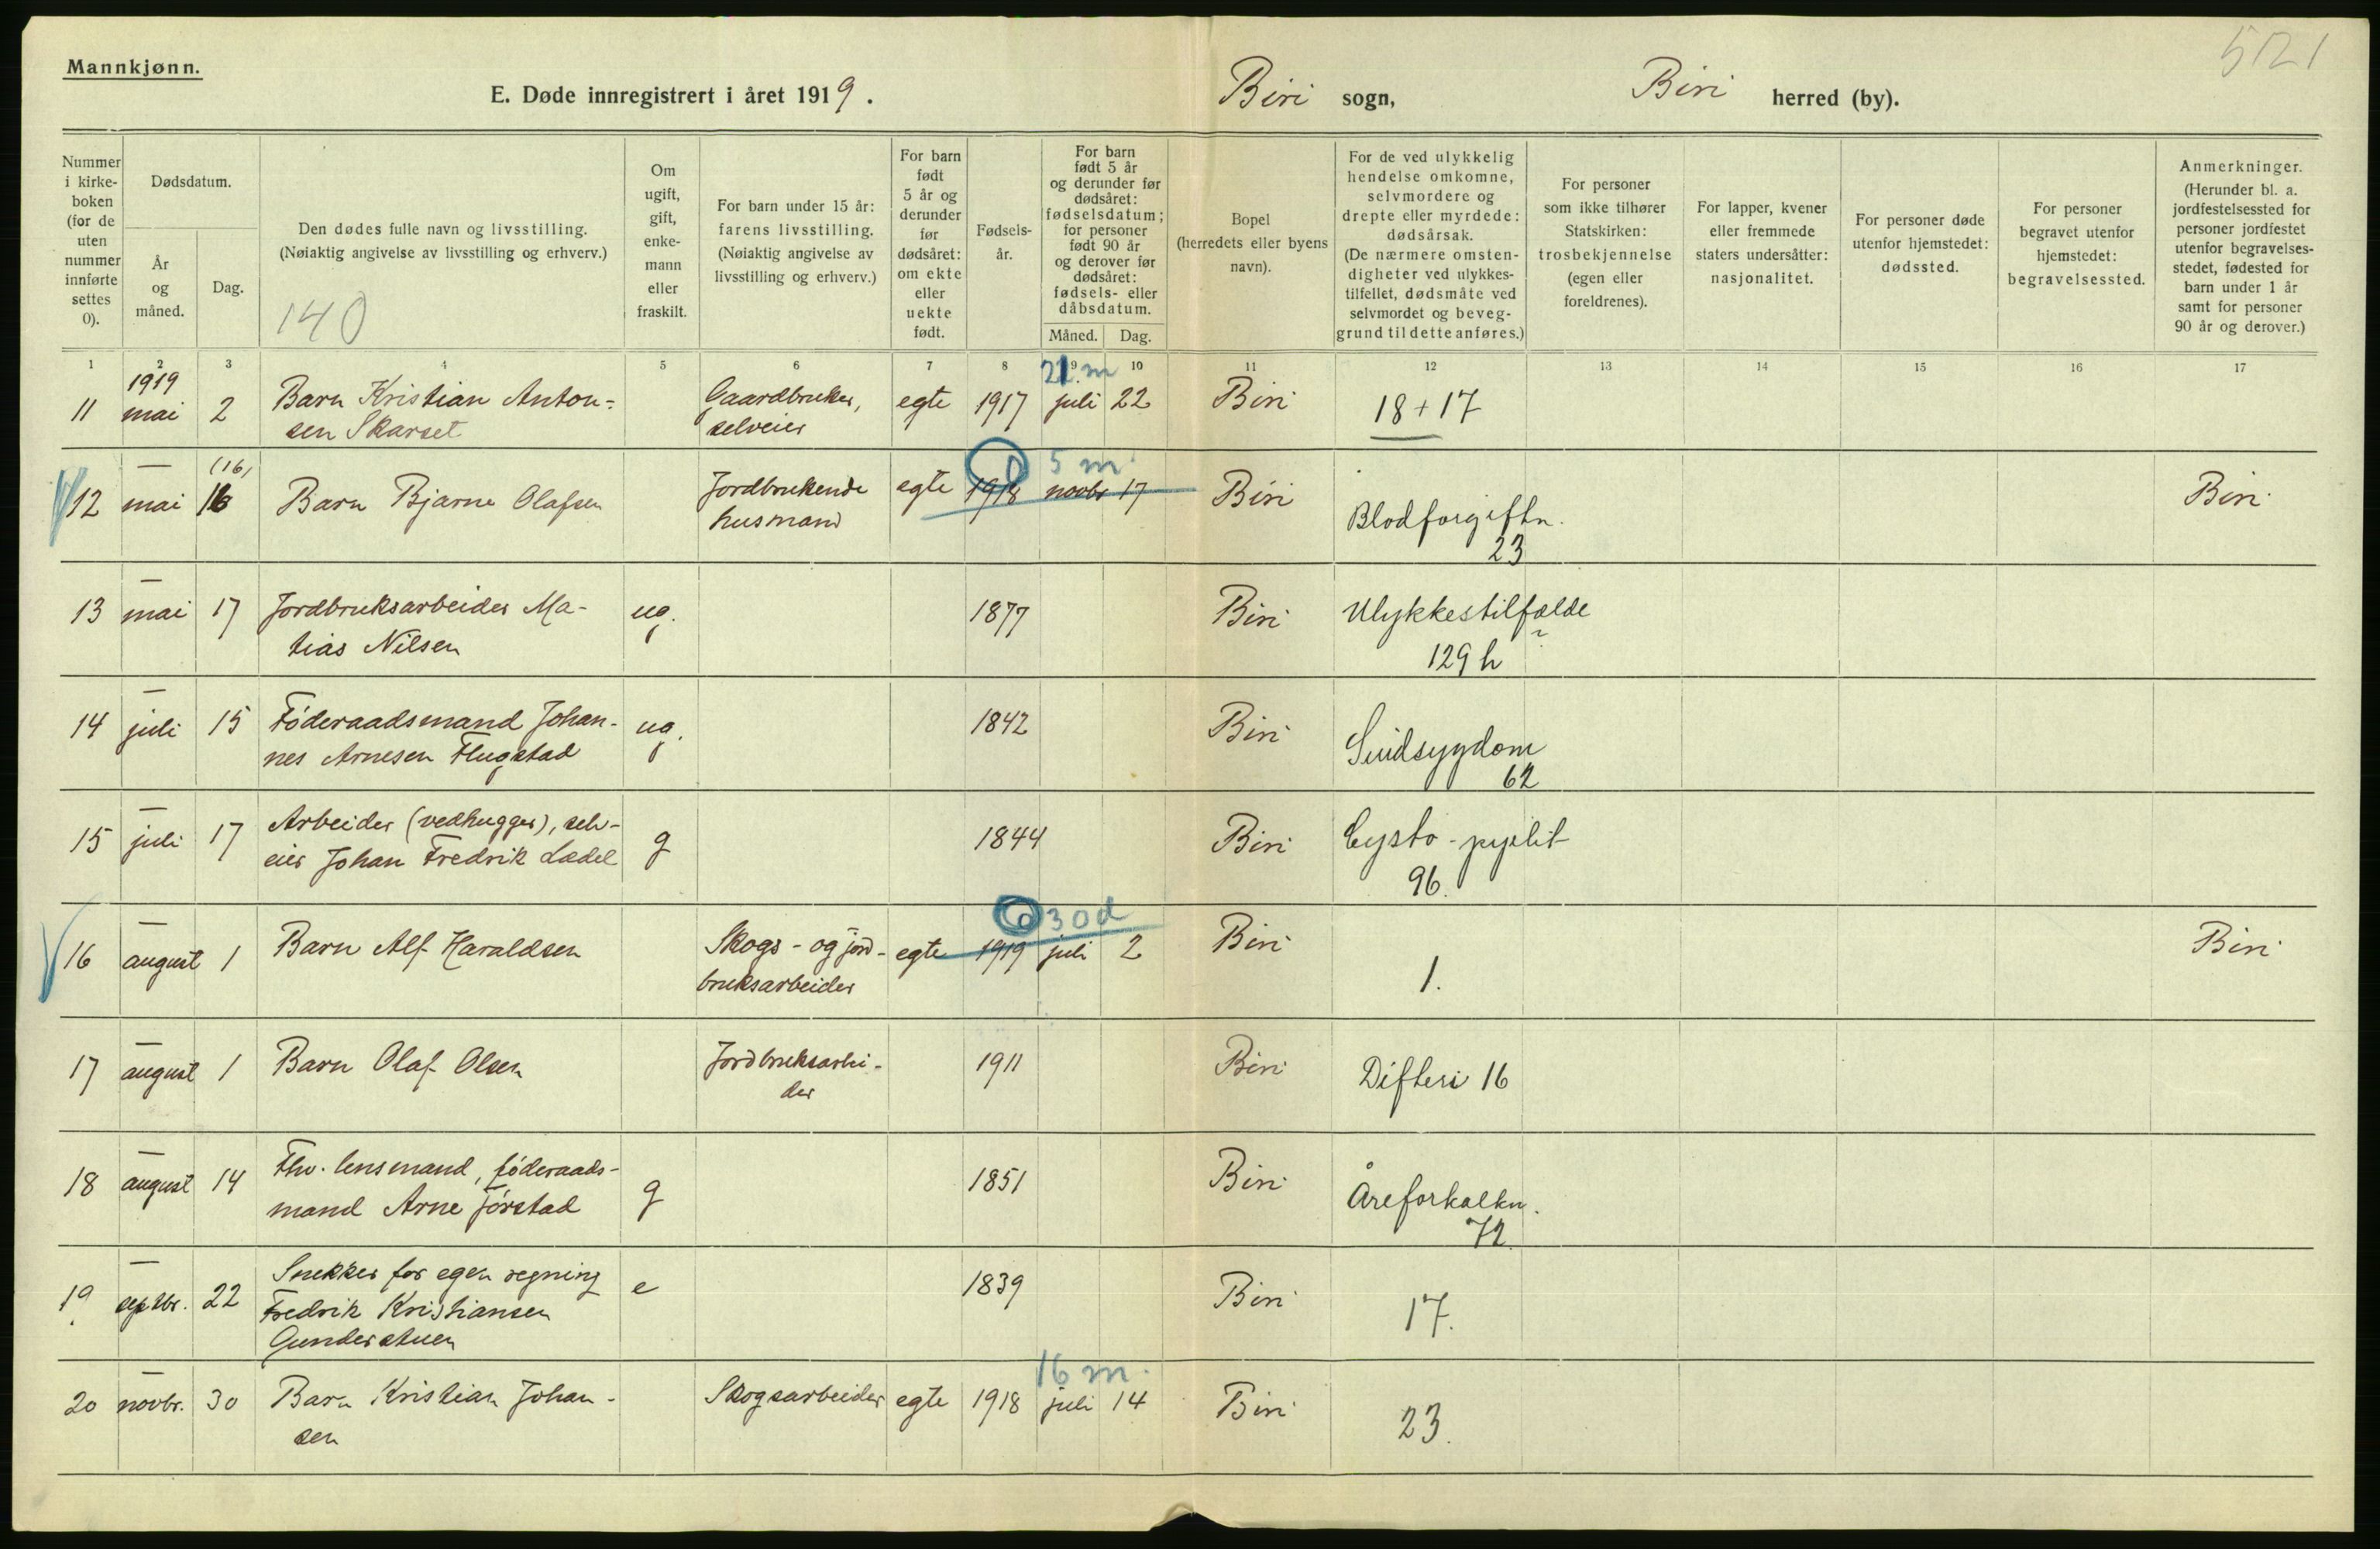 521
Mannkjønn.
E. Døde innregistrert i året 1919.
Biri sogn,
Biri herred (by).
Nummer i kirke-boken (for de uten nummer innførte settes 0).
Dødsdatum.
År og måned.
Dag.
Den dødes fulle navn og livsstilling.
(Nøiaktig angivelse av livsstilling og erhverv.)
140
Om ugift, gift, enke-mann eller fraskilt.
For barn under 15 år: farens livsstilling. (Nøiaktig angivelse av livsstilling og erhverv.)
For barn født 5 år og derunder før dødsåret: om ekte eller uekte født.
Fødsels-år.
For barn født 5 år og derunder før dødsåret: fødselsdatum; for personer født 90 år og derover før dødsåret: fødsels- eller dåbsdatum.
Måned. Dag.
Bopel (herredets eller byens navn).
For de ved ulykkelig hendelse omkomne, selvmordere og drepte eller myrdede: dødsårsak. (De nærmere omsten-digheter ved ulykkes-tilfellet, dødsmåte ved selvmordet og beveg-grund til dette anføres.)
For personer som ikke tilhører Statskirken: trosbekjennelse (egen eller foreldrenes).
For lapper, kvener eller fremmede staters undersåtter: nasjonalitet.
For personer døde utenfor hjemstedet: dødssted.
For personer begravet utenfor hjemstedet: begravelsessted.
Anmerkninger. (Herunder bl. a. jordfestelsessted for personer jordfestet utenfor begravelses-stedet, fødested for barn under 1 år samt for personer 90 år og derover.)
1 2 3 4 5 6 7 8 9 10 11 12 13 14 15 16 17
1919 21 m
11 mai 2 Barn Kristian Anton- Gaardbruker, egte 1917 juli 22 Biri 18 + 17
sen Skarset selveier
— (16) 0 5 m.
12 mai 16 Barn Bjarne Olafsen Jordbrukende egte 1918 novbr 17 Biri Blodforgiftn. Biri
husmand 23
—
13 mai 17 Jordbruksarbeider Ma- ug. 1877 Biri Ulykkestilfælde
tias Nilsen 129 h
—
14 juli 15 Föderaadsmand Johan- ug. 1842 Biri Sindsygdom
nes Arnesen Flugstad 62
—
15 juli 17 Arbeider (vedhugger), selv- g 1844 Biri Cysto-pyelit
eier Johan Fredrik Lædel 96.
— 0 30 d
16 august 1 Barn Alf Haraldsen Skogs- og jord- egte 1919 juli 2 Biri 1. Biri
bruksarbeider
—
17 august 1 Barn Olaf Olsen Jordbruksarbei- 1911 Biri Difteri 16
der
—
18 august 14 Fhv. lensmand, föderaads- g 1851 Biri Åreforkalkn.
mand Arne Jörstad 72
—
19 septbr. 22 Snekker for egen regning e 1839 Biri 17.
Fredrik Kristiansen
Gunderstuen
— 16 m.
20 novbr. 30 Barn Kristian Johan- Skogsarbeider egte 1918 juli 14 Biri 23.
sen